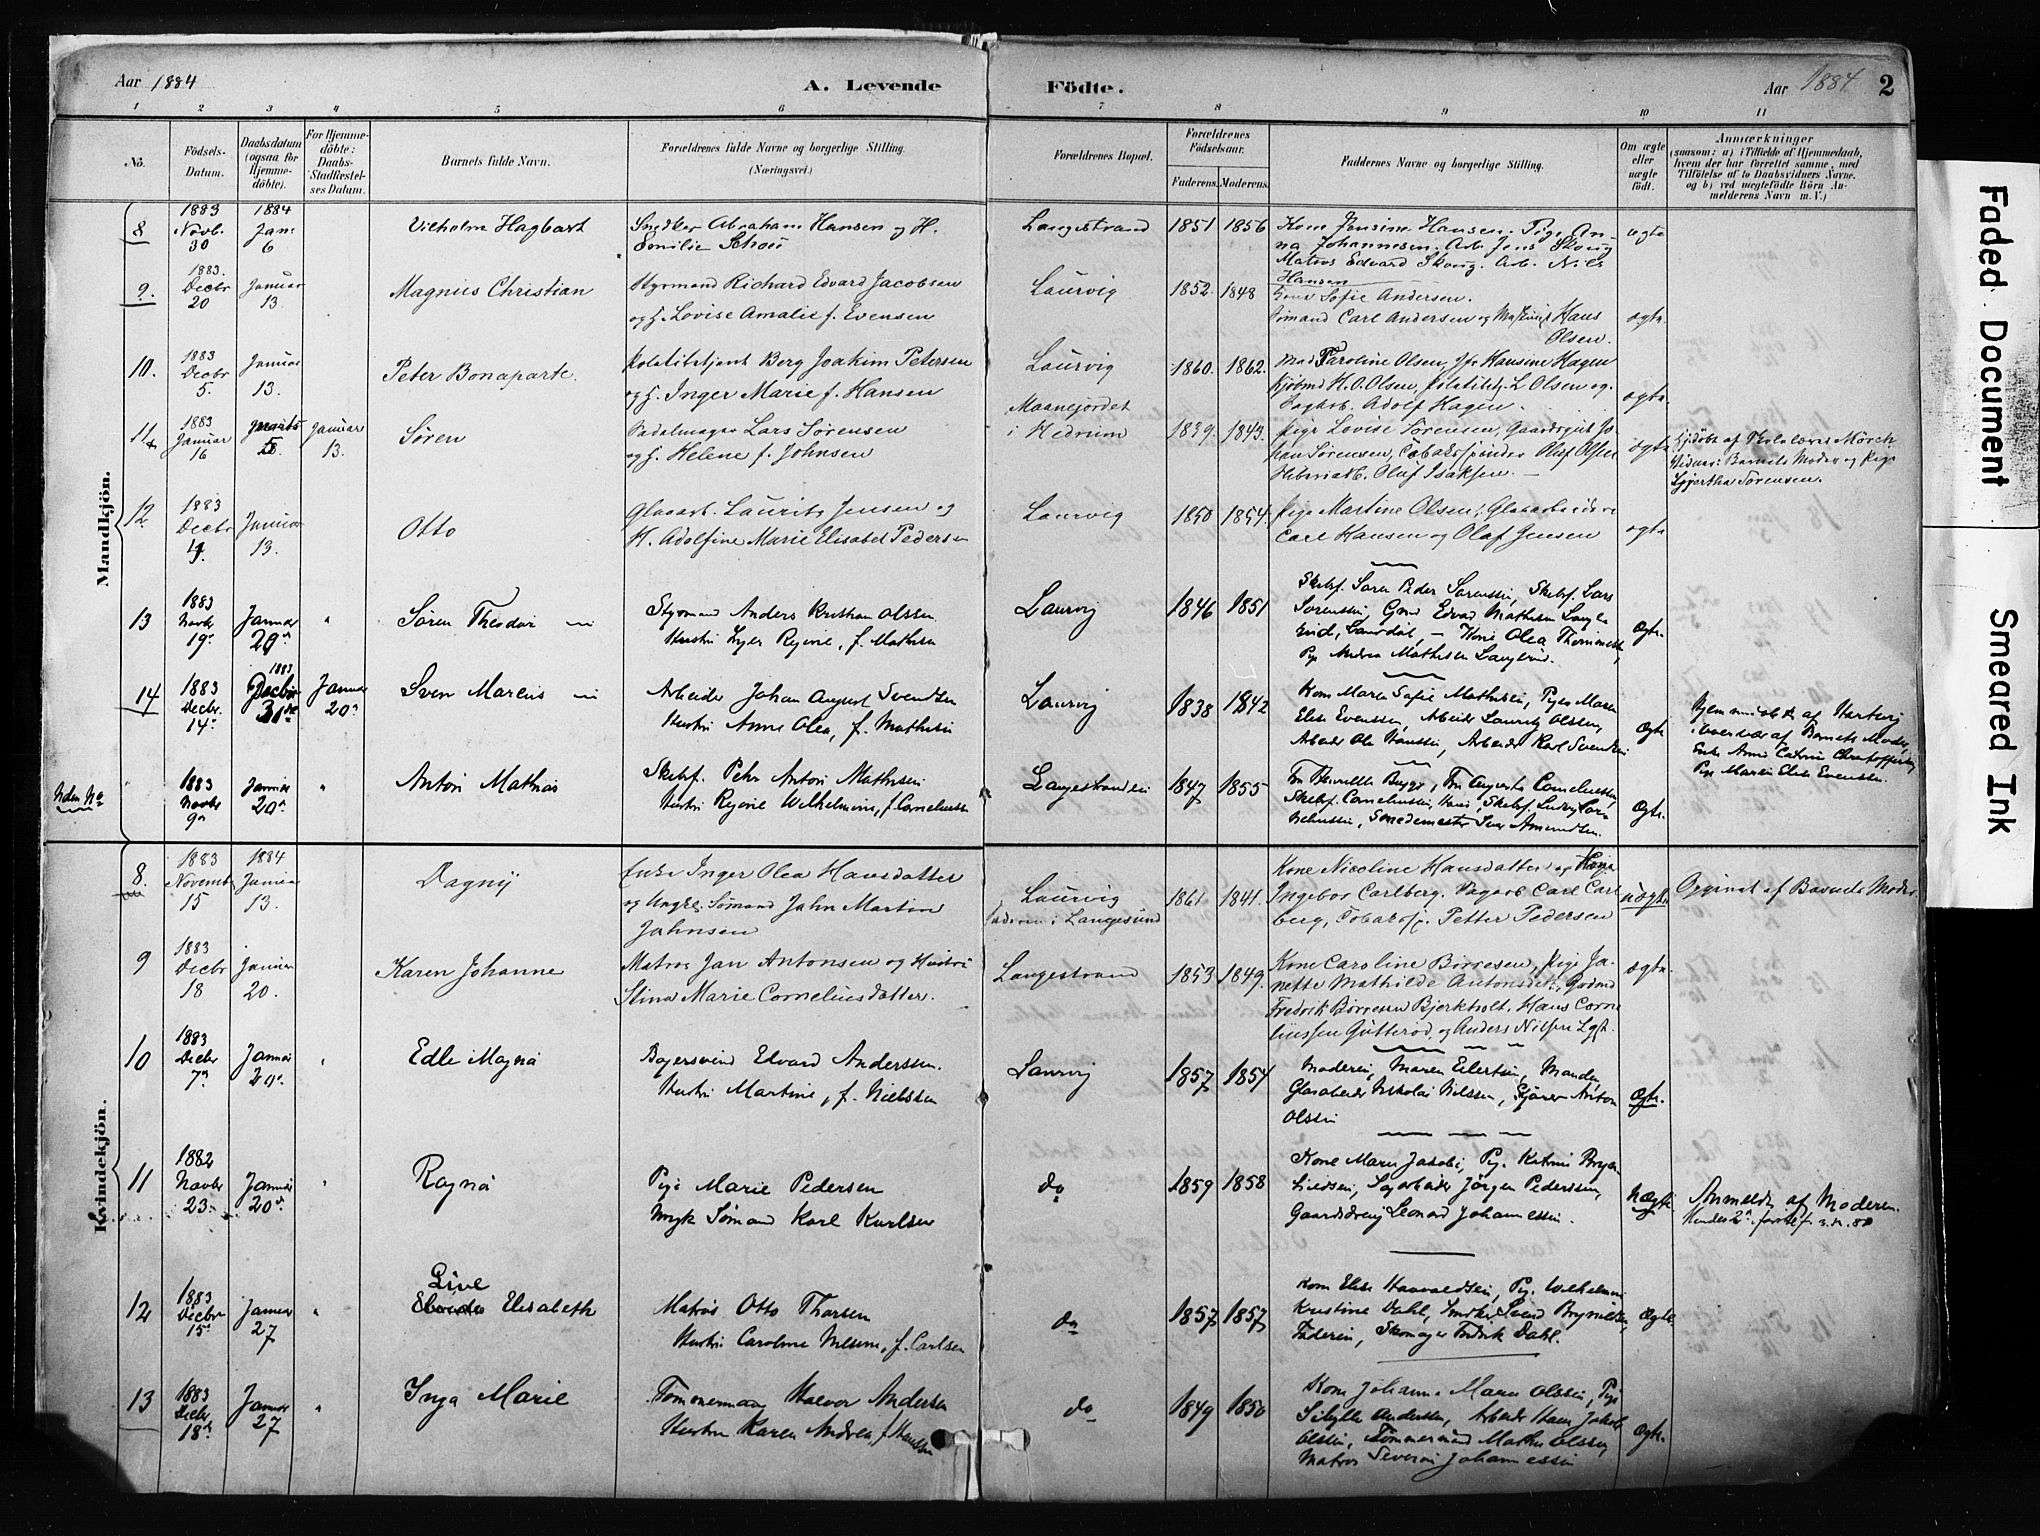 Aar 1884
A. Levende
Födte.
Aar 1884
2
1 2 3 4 5 6 7 8 9 10 11
No.
Födsels-
Datum.
Daabsdatum
(ogsaa for
Hjemme-
döbte).
For Hjemme-
döbte:
Daabs-
Stadfæstel-
ses Datum.
Barnets fulde Navn.
Forældrenes fulde Navne og borgerlige Stilling.
(Næringsvei.)
Forældrenes Bopæl.
Forældrenes
Födselsaar.
Faderens. Moderens.
Faddernes Navne og borgerlige Stilling.
Om ægte
eller
uægte
födt.
Anmærkninger
(saasom: a) i Tilfælde af Hjemmedaab,
hvem der har forrettet samme, med
Tilföielse af to Daabsvidners Navne.
og b) ved uægtefödte Börn An-
melderens Navn m. V.)
Mandkjön.
8
1883
Novb.
30
1884
Jan.
6
Vilhelm Hagbart
Snedker Abraham Hansen og H.
Emilie
Langestrand
1851 1856
Kone Jensine Hansen. Pige An-
na Johannesen. Arb. Jens Skoug
Matros Edvard Skoug. Arb. Nils
Hansen
ægte
9.
1883.
Decbr
20
Januar
13.
Magnus Christian
Styrmand Richard Edvard Jacobsen
og H. Lovise Amalie f. Evensen
Laurvig
1852. 1848
Kone Sofie Andersen.
Sömand Carl Andersen og Hans
Olsen.
ægte.
10.
1883
Decbr
5.
Januar
13.
Peter Bonaparte.
Politibetjent Berg Joakim Petersen
og H. Inger Marie f. Hansen
Laurvig
1860. 1862.
Mad. Caroline Olsen, Jfr Hansine Hagen
Kjöbmd H. O. Olsen, L Olsen og
Adolf Hagen.
ægte.
11
1883
Januar
16
Januar
13.
Sören
Sadelmager Lars Sörensen
og H. Helene f. Johnsen
Maanejordet
i Hedrum
1839. 1843.
Pige Lovise Sörensen, Gaardsgut Jo-
han Sörensen, Olaf Olsen
Olaf Isaksen.
ægte
Hjdöbt af Skolelærer Mörch
Vidner: Barnets Moder og Pige
Sörensen.
12
1883
Decbr
4.
Januar
13.
Otto
Glasarb. Lauritz Jensen og
H. Adolfine Marie Elisabet Pedersen
Laurvig
1850 1854.
Pige Martine Olsen, Glasarbeidere
Carl Hansen og Olaf Jensen
ægte
13
1883
Novbr
19
Januar
20
"
Sören Theodor
Styrmand Anders Kristian Olssen
Hustru Regine, f. Mathisen
Laurvig
1846 1851
Skibsf. Sören Peder Sörensen, Skibsf. Lars
Sörensen, Edvard Mathisen
Kone Olea
Pige Andrea Mathisen
Ægte.
14
1883
Decbr.
14
1883
Decbr
31
Januar
20
Sven Marcus
Arbeider Johan August Svendsen
Hustru Anne Olea, f. Mathisen
Laurvig
1838 1842
Kone Maren Sofie Mathisen, Pige Maren
Elise Evenssen, Arbeider Lauritz Olssen,
Arbeider Ole Hanssen, Arbeider Karl Svendsen
Ægte
Hjemmedöbt af
i Overvær af Barnets Moder,
Enke Anne Catrine Christoffersen,
Pige Maren Elise Evenssen.
Uden No
1883
Novbr
9
Januar
20
"
Anton Mathias
Skibsf. Peter Anton Mathisen
Hustru Regine Wilhelmine, f. Corneliussen
Langestranden
1847 1855
Fru Bugge, Fru Augusta Corneliussen,
Skibsf. Corneliussen, Skibsf. Ludvig Cor-
neliussen, Smedemester Iver Amundsen.
Ægte.
Kvindekjön.
8.
1883
Novemb.
15
1884
Januar
13.
Dagny
Enke Inger Olea Hansdatter
og Ungkl. Sömand John Martin
Johnsen
Laurvig
Faderen i Langesund
1861 1841.
Kone Nicoline Hansdatter og Kone
Ingebor Carlberg. Carl Carl-
berg, Petter Pedersen
uægte
Opgivet af Barnets Moder.
9
1883
Decbr
18
Januar
20.
Karen Johanne
Matros Jan Antonsen og Hustru
Stina Marie Corneliusdatter.
Langestrand
1853 1849.
Kone Caroline Börresen, Pige Ja-
nette Mathilde Antonsdt.,
Fredrik Börresen Bjerkholt, Hans Corne-
liussen og Anders Nilsen
ægte.
10
1883
Decbr
7
Januar
20
"
Edle Magna
Bagersvend Edvard Anderssen.
Hustru Martine, f. Nielssen
Laurvig
1857 1854
Moderen, Maren Eilertsen, Manden
Glasarbeider Nikolai Nilssen, Anton
Olssen
Ægte.
11
1882
Novbr
23.
Januar
20
"
Ragna
Pige Marie Pedersen
Ungk. Sömand Karl Karlsen
do
1859 1858
Kone Maren Jakobs, Pige Katrine
Jörgen Pederssen,
Gaardsdreng Leonard Johannessen.
Uægte
Anmeldt af Moderen.
12
1883
Decbr
15
Januar
27
"
Live
Elisabeth
Matros Otto Thorsen
Hustru Caroline f. Carlsen
do
1857 1857
Kone Elise Haavaldsen, Pige Wilhelmine
Kristine Dahl, Svend Brynildsen,
Faderen, Skomager Fredrik Dahl.
Ægte
13
1883
Decbr
18
Januar
27
"
Inga Marie
Tömmermand Halvor Andersen
Hustru Karen Andrea f. Hanssen
do
1849 1850
Kone Johanne Maren Olssen, Pige
Sibylle Anderssen, Arbeider Hans Jakob
Olssen, Tömmermand Mathis Olssen,
Matros Severin Johannessen
Ægte.
Faded Document
Smeared Ink